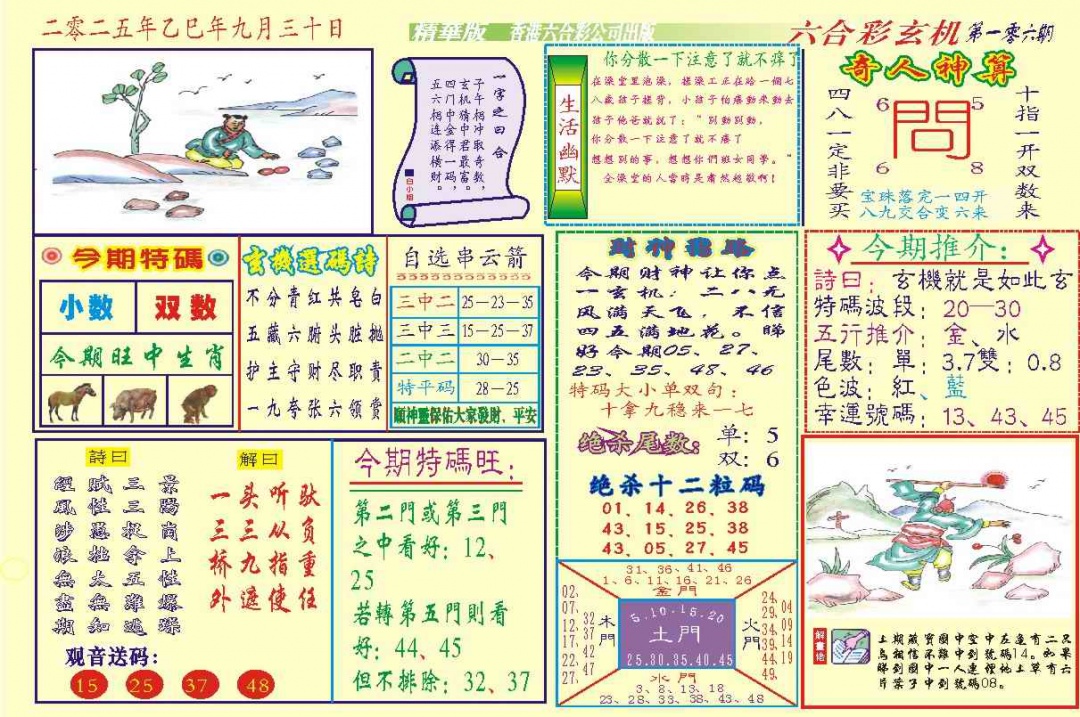 二零二五年乙巳年九月三十日
精華版 香港六合彩公司出版
六合彩玄机 第一零六期
一字之曰合
子午相冲取奇数,
玄机猜中君最富,
四门中金得一码,
五六相连添横财
白小姐
生活幽默
你分散一下注意了就不痒了
在澡堂里泡澡,搓澡工正在给一個七
八歲孩子搓背,小孩子怕癢動來動去
孩子他爸就説了:"别動别動,
你分散一下注意了就不癢了
想想别的事,想想你們班女同學。"
全澡堂的人當時是肅然起敬啊!
奇人神算
四八一定非要买
十指一开双数来
6 5
問
6 8
宝珠落定一四开
八九交合变六来
今期特碼
小数 双数
今期旺中生肖
玄機選碼詩
不分青红共皂白
五藏六腑头脏抛
护主守财尽职责
一九夸张六领赏
自选串云箭
三中二 25—23—35
三中三 15—25—37
二中二 30—35
特平码 28—25
願神靈保佑大家發財、平安
財神報路
今期财神让你点
一玄机:二八九
风满天飞,不信
四五满地花。睇
好今期05、27、
23、35、48、46
特码大小单双句:
十拿九稳来一七
绝杀尾数: 单:5
双:6
绝杀十二粒码
01、14、26、38
43、15、25、38
43、05、27、45
今期推介:
詩曰:玄機就是如此玄
特碼波段:20—30
五行推介:金、水
尾數:單:3.7雙:0.8
色波:紅、藍
幸運號碼:13、43、45
詩曰
景陽崗上性爆躁
三三拟拿五難逃
賦性愚拙太無知
經風涉浪無盡期
解曰
驮负重任
听从指使
头三九遮
一三桥外
观音送码:
15 25 37 48
今期特碼旺:
第二門或第三門
之中看好:12、
25
若轉第五門則看
好:44、45
但不排除:32、37
31、36、41、46
1、6、11、16、21、26
金門
02、07、12、17、22、27、
32 37 42 47
木門
5.10.15.20
土門
25.30.35.40.45
火門
24、29、34、39、44、49、
04 09 14 19
水門
3、8、13、18
23、28、33、38、43、48
解畫佬
上期藏寶圖中空中左邊有二只
鳥相信不難中到號碼14。如果
睇到圖中一人連惺他上草有六
片葉子中到號碼08。